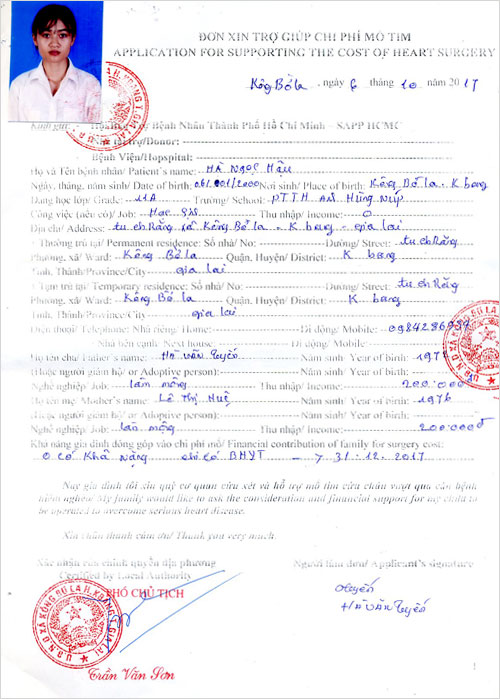 ĐƠN XIN TRỢ GIÚP CHI PHÍ MỔ TIM
APPLICATION FOR SUPPORTING THE COST OF HEART SURGERY
Kông Bờ la, ngày 6 tháng 10 năm 2017
Kính gửi: Bệnh Nhân Thành Phố Hồ Chí Minh – SAPP HCMC
trợ/Donor:
Bệnh Viện/Hopspital:
Họ và Tên bệnh nhân/ Patient's name: HÀ NGỌC HẬU
Ngày, tháng, năm sinh/ Date of birth: 06/001/2000 Nơi sinh/ Place of birth: Kông Bờ la. K bang
Đang học lớp/ Grade: 11A Trường/ School: PTTH Anh Hùng Núp
Công việc (nếu có)/ Job: Học sinh Thu nhập/ Income: 0
Địa chỉ/ Address: tu chRăng xã Kông Bờ la - K bang - gia lai
Thường trú tại/ Permanent residence: Số nhà/ No: Đường/ Street: tu chRăng
Phường, xã/ Ward: Kông Bờ la Quận, Huyện/ District: K bang
Tỉnh, Thành/Province/City gia lai
Tạm trú tại/ Temporary residence: Số nhà/ No: Đường/ Street: tu chRăng
Phường, xã/ Ward: Kông Bờ la Quận, Huyện/ District: K bang
Tỉnh, Thành/Province/City gia lai
Điện thoại/ Telephone: Nhà riêng/ Home: Di động/ Mobile:
Nhà bên cạnh/ Next house Di động/ Mobile:
Họ tên cha/ Father's name: HÀ VĂN Tuyến Năm sinh/ Year of birth:
(Hoặc người giám hộ/ or Adoptive person): Năm sinh/ Year of birth:
Nghề nghiệp/ Job: làm nông Thu nhập/ Income:
Họ tên mẹ/ Mother's name: Lê Thị Huệ Năm sinh/ Year of birth: 1976
(Hoặc người giám hộ/ or Adoptive person): Năm sinh/ Year of birth:
Nghề nghiệp/ Job: làm nông Thu nhập/ Income: 200.000đ
Khả năng gia đình đóng góp vào chi phí mổ/ Financial contribution of family for surgery cost:
0 có Khả Năng chỉ có BHYT 31.12.2017
Nay gia đình tôi xin quý cơ quan cứu xét và hỗ trợ mổ tim cứu cháu vượt qua căn bệnh
hiểm nghèo/ My family would like to ask the consideration and financial support for my child to
be operated to overcome serious heart disease.
Xin chân thành cám ơn/ Thank you very much.
Xác nhận của chính quyền địa phương Người làm đơn/ Applicant's signature
Certified by Local Authority
PHÓ CHỦ TỊCH
Tuyến
HÀ VĂN Tuyến
Trần Văn Sơn